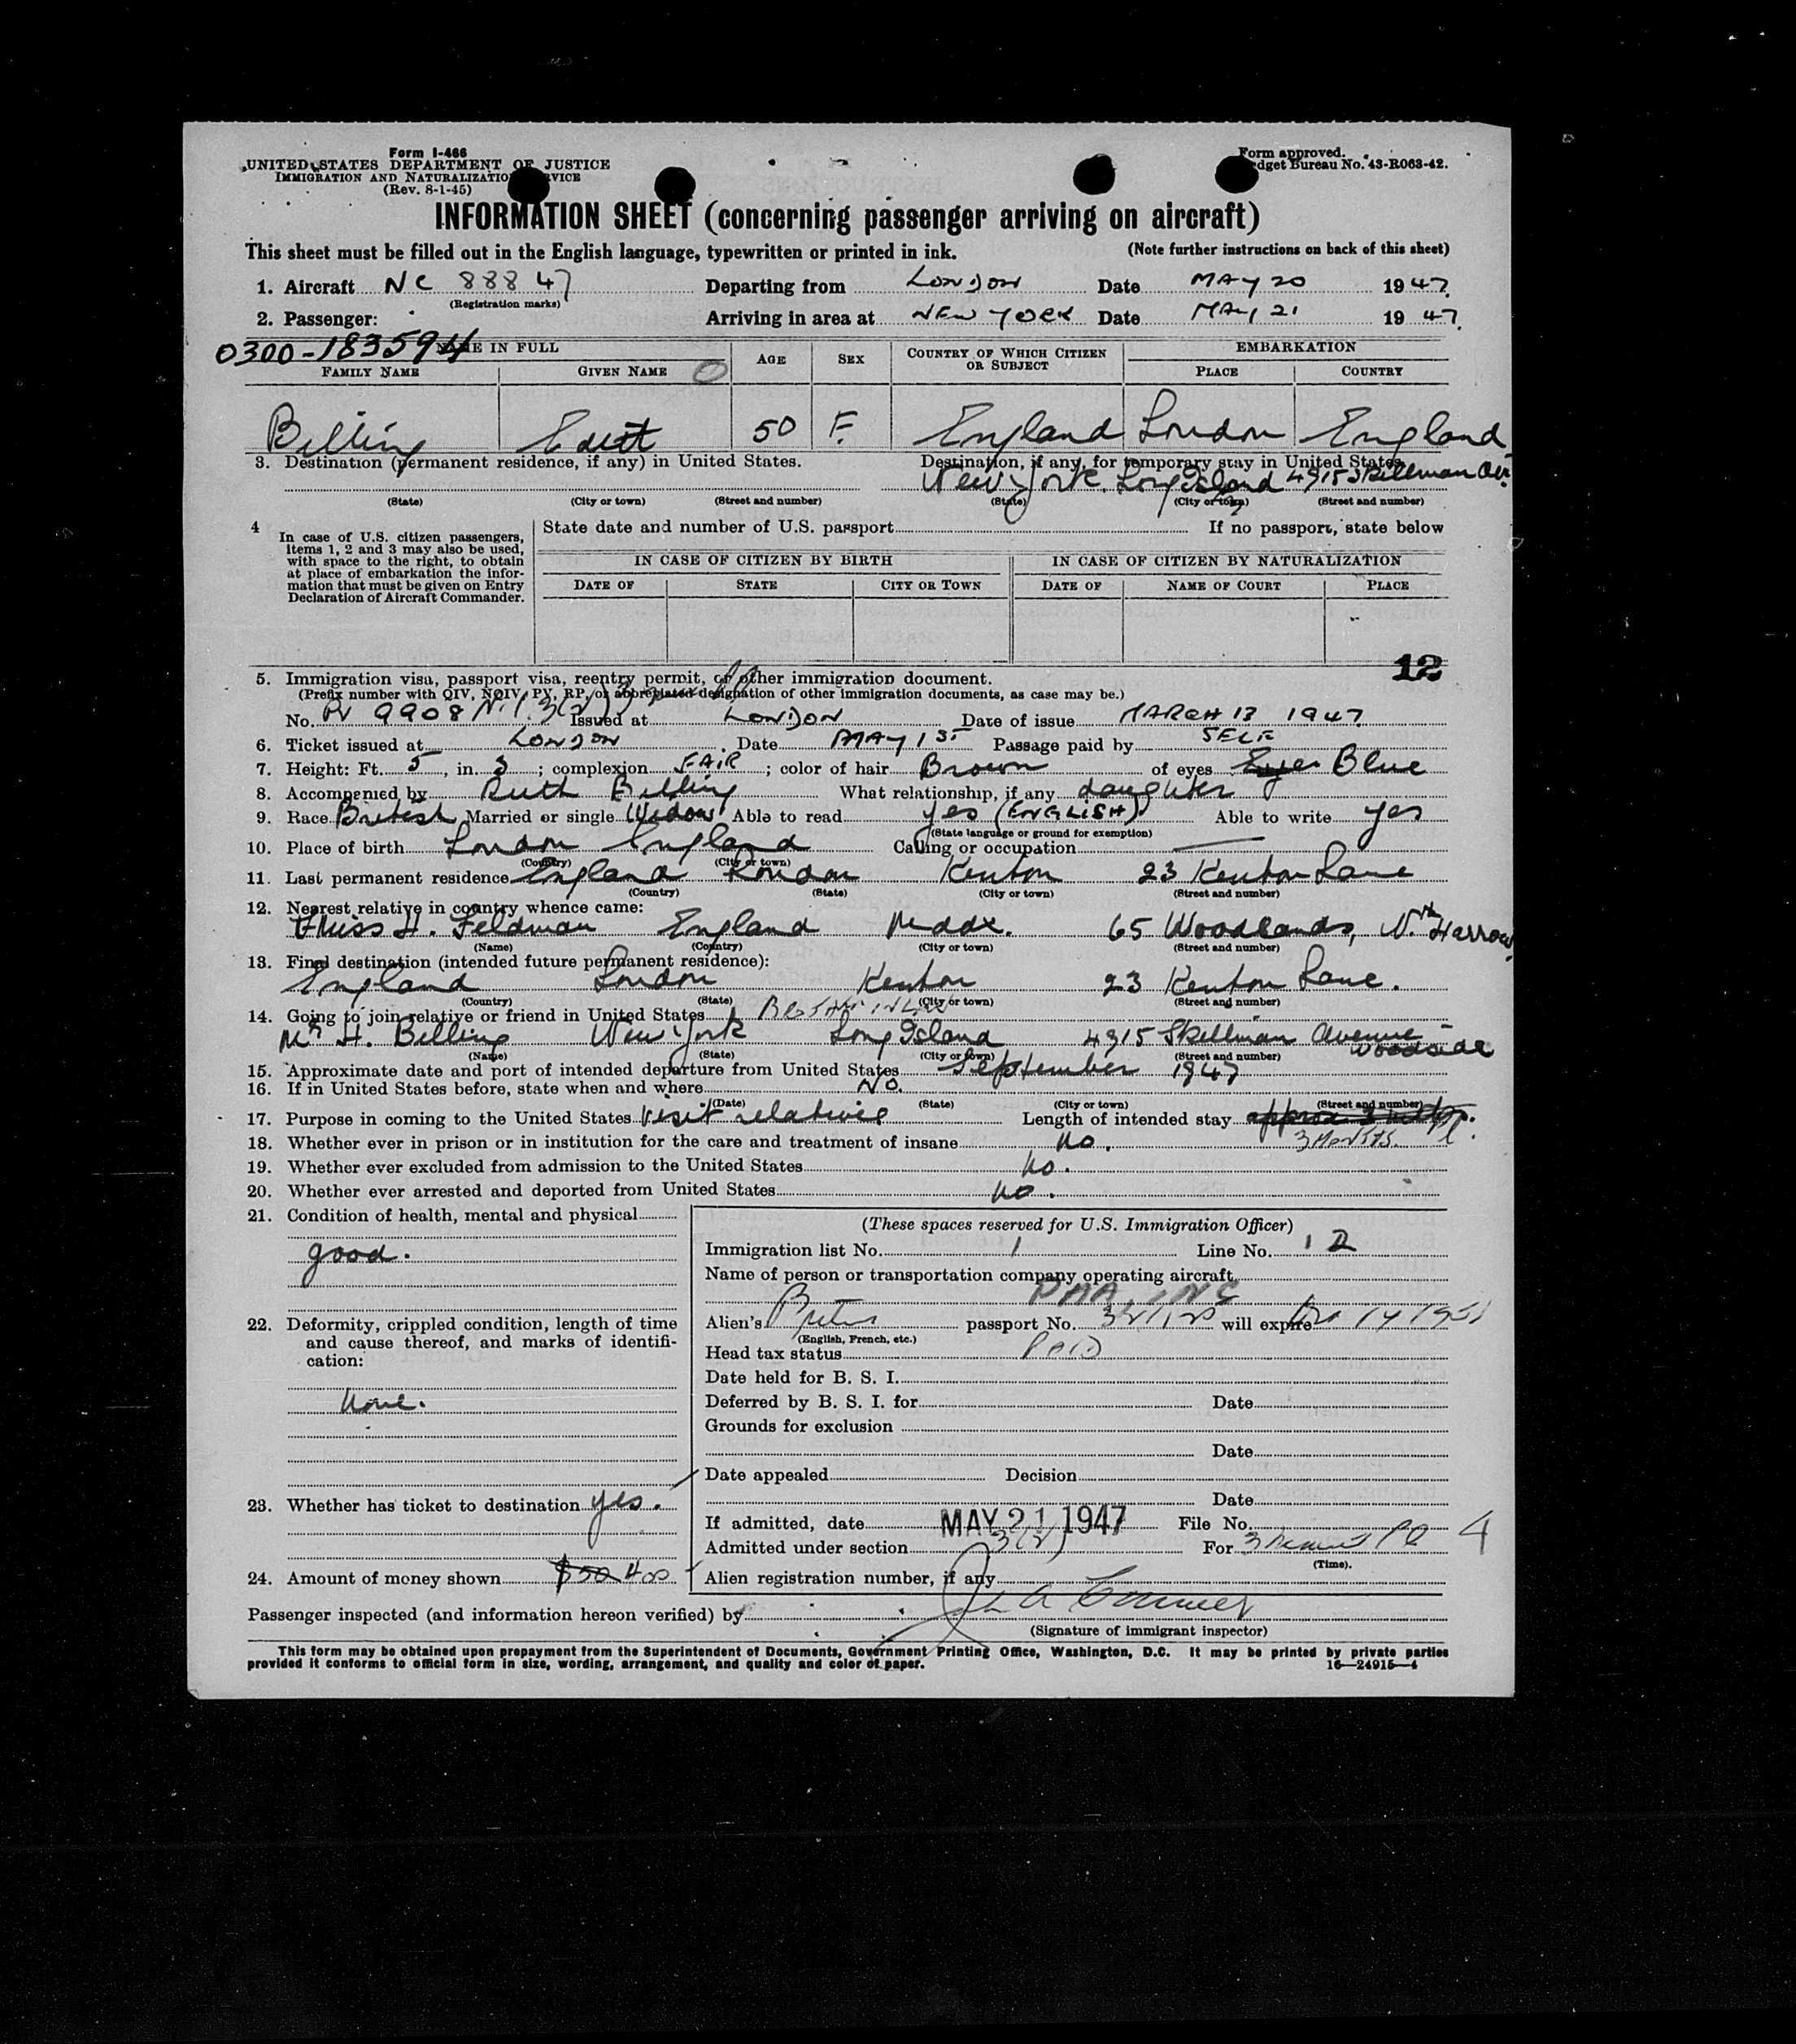 Form I-466
UNITED STATES DEPARTMENT OF JUSTICE
IMMIGRATION AND NATURALIZATION SERVICE
(Rev. 8-1-45)
Form approved.
Budget Bureau No. 43-R063-42.
INFORMATION SHEET (concerning passenger arriving on aircraft)
This sheet must be filled out in the English language, typewritten or printed in ink. (Note further instructions on back of this sheet)
1. Aircraft NC 88847 Departing from LONDON Date MAY 20 1947
(Registration marks)
2. Passenger: Arriving in area at NEW YORK Date MAY 21 1947
0300-183594
NAME IN FULL AGE SEX COUNTRY OF WHICH CITIZEN OR SUBJECT EMBARKATION
FAMILY NAME GIVEN NAME PLACE COUNTRY
Billing Edit 50 F. England London England
3. Destination (permanent residence, if any) in United States. Destination, if any, for temporary stay in United States.
New York. Long Island 4915 Skillman Av.
(State) (City or town) (Street and number) (State) (City or town) (Street and number)
4 In case of U.S. citizen passengers, items 1, 2 and 3 may also be used, with space to the right, to obtain at place of embarkation the information that must be given on Entry Declaration of Aircraft Commander.
State date and number of U.S. passport If no passport, state below
IN CASE OF CITIZEN BY BIRTH IN CASE OF CITIZEN BY NATURALIZATION
DATE OF STATE CITY OR TOWN DATE OF NAME OF COURT PLACE
12
5. Immigration visa, passport visa, reentry permit, or other immigration document.
(Prefix number with QIV, NQIV, PV, RP, or abbreviated designation of other immigration documents, as case may be.)
No. PV 9908 N.I. 3(2) Issued at LONDON Date of issue MARCH 13 1947
6. Ticket issued at LONDON Date MAY 1ST Passage paid by SELF
7. Height: Ft. 5, in. 3; complexion FAIR; color of hair Brown of eyes Eyes Blue
8. Accompanied by Ruth Billing What relationship, if any daughter
9. Race British Married or single Widow Able to read yes (ENGLISH) Able to write yes
(State language or ground for exemption)
10. Place of birth London England Calling or occupation
(Country) (City or town)
11. Last permanent residence England London Kenton 23 Kenton Lane
(Country) (State) (City or town) (Street and number)
12. Nearest relative in country whence came:
Miss H. Feldman England Middx. 65 Woodlands, Nth Harrow
(Name) (Country) (City or town) (Street and number)
13. Final destination (intended future permanent residence):
England London Kenton 23 Kenton Lane.
(Country) (State) (City or town) (Street and number)
14. Going to join relative or friend in United States
Mr H. Billing New York Long Island 4915 Skillman Avenue Woodside
(Name) (State) (City or town) (Street and number)
15. Approximate date and port of intended departure from United States September 1947
16. If in United States before, state when and where NO.
(Date) (State) (City or town) (Street and number)
17. Purpose in coming to the United States Visit relative Length of intended stay
3 Months.
18. Whether ever in prison or in institution for the care and treatment of insane no.
19. Whether ever excluded from admission to the United States no.
20. Whether ever arrested and deported from United States no.
21. Condition of health, mental and physical
good.
22. Deformity, crippled condition, length of time and cause thereof, and marks of identification:
None.
23. Whether has ticket to destination yes.
24. Amount of money shown $50 400
(These spaces reserved for U.S. Immigration Officer)
Immigration list No. 1 Line No. 12
Name of person or transportation company operating aircraft
PAA, INC
Alien's passport No. will expire
(English, French, etc.)
Head tax status PAID
Date held for B. S. I.
Deferred by B. S. I. for Date
Grounds for exclusion
Date
Date appealed Decision
Date
If admitted, date MAY 21 1947 File No.
Admitted under section 3(2) For 3 4
(Time).
Alien registration number, if any
Passenger inspected (and information hereon verified) by
(Signature of immigrant inspector)
This form may be obtained upon prepayment from the Superintendent of Documents, Government Printing Office, Washington, D.C. It may be printed by private parties
provided it conforms to official form in size, wording, arrangement, and quality and color of paper. 16—24915-4